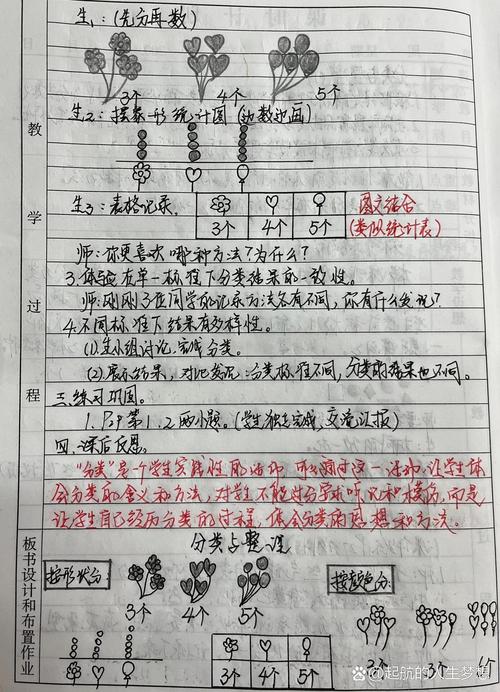 生1:(先分再数)
3个 4个 5个
生2:按象形统计图(边数边画)
教
生3:表格记录.
3个 4个 5个
图文结合
(类似统计表)
学
师:你更喜欢哪种方法?为什么?
3.体验在单一标准下分类结果的一致性。
过
师:刚刚3位同学的记录方法各有不同,你有什么发现?
4.不同标准下结果有多样性。
(1).生小组讨论,完成分类。
(2).展示结果,对比发现:分类标准不同,分类的结果也不同。
程
三.练习巩固。
1.P 第1.2两小题。(学生独立完成,交流汇报)
四.课后反思。
"分类"是一个学生实践性 的活动 可以通过这一活动,让学生体
会分类的含义和方法,对学生不能过分 和模仿,而是
让学生自己经历分类的过程,体会分类的思想和方法。
板书设计和布置作业
分类与整理
按形状分:
3个 4个 5个
3个 4个 5个
按颜色分:
3个
@起航的人生梦想